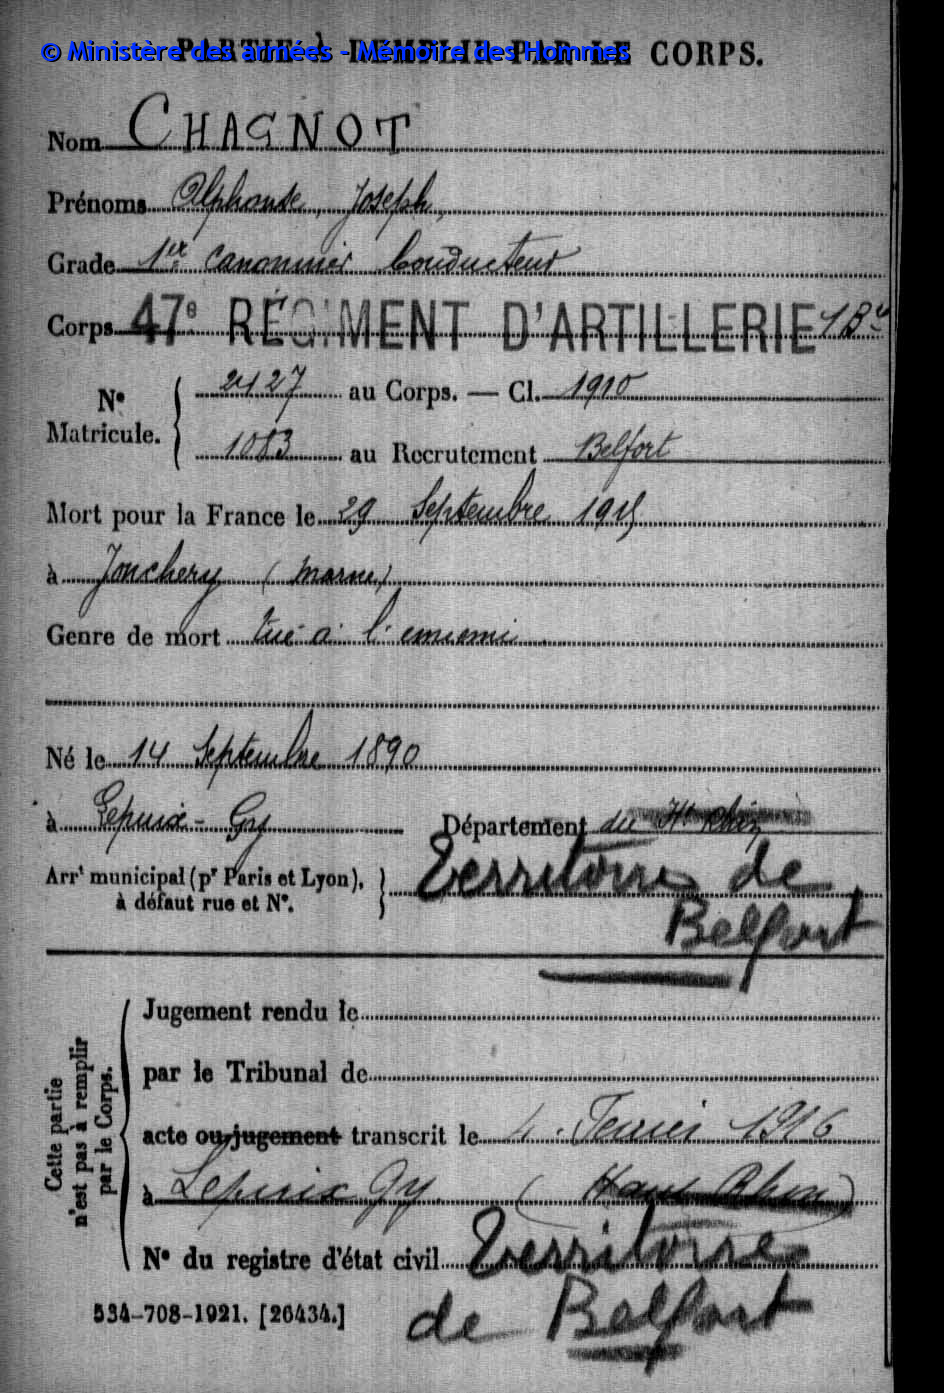 PARTIE À REMPLIR PAR LE CORPS.
© Ministère des armées - Mémoire des Hommes
Nom CHAGNOT
Prénoms Alphonse, Joseph,
Grade 1er canonnier Conducteur
Corps 47e RÉGIMENT D'ARTILLERIE 1Bie
N° Matricule. { 2427 au Corps. — Cl. 1910
1083 au Recrutement Belfort
Mort pour la France le 29 Septembre 1915
à Jonchery (Marne)
Genre de mort Tué à l'ennemi
Né le 14 Septembre 1890
à Lepuix-Gy Département du Ht Rhin
Territoire de
Belfort
Arrt municipal (pr Paris et Lyon),
à défaut rue et N°.
Cette partie
n'est pas à remplir
par le Corps.
Jugement rendu le
par le Tribunal de
acte ou jugement transcrit le 4 Fevrier 1916
à Lepuix Gy (Haut Rhin)
N° du registre d'état civil Territoire
de Belfort
534-708-1921. [26434.]